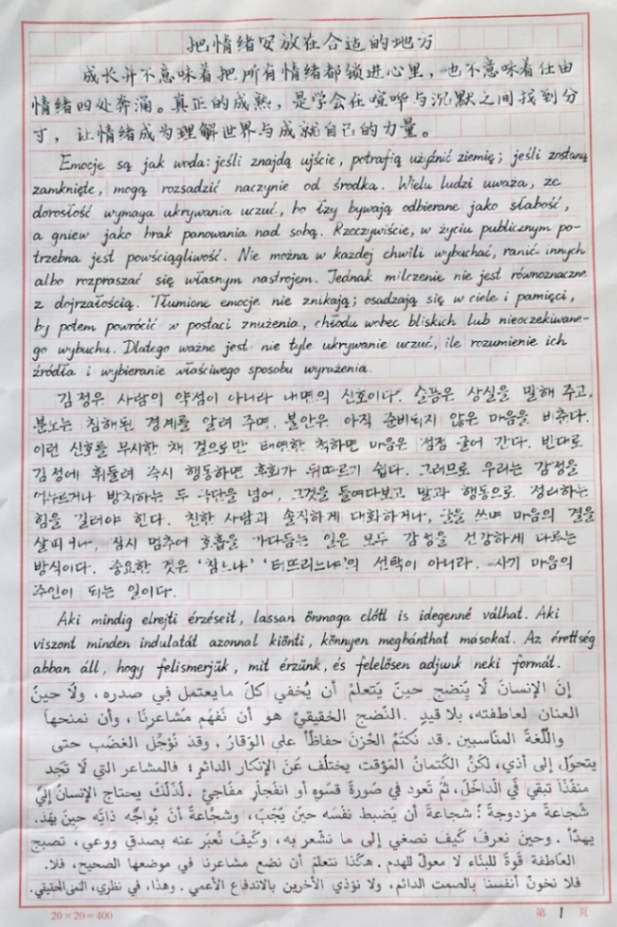 把情绪安放在合适的地方
成长并不意味着把所有情绪都锁进心里，也不意味着任由
情绪四处奔涌。真正的成熟，是学会在喧哗与沉默之间找到分
寸，让情绪成为理解世界与成就自己的力量。
Emocje są jak woda: jeśli znajdą ujście, potrafią użyźnić ziemię; jeśli zostaną
zamknięte, mogą rozsadzić naczynie od środka. Wielu ludzi uważa, że
dorosłość wymaga ukrywania uczuć, bo łzy bywają odbierane jako słabość,
a gniew jako brak panowania nad sobą. Rzeczywiście, w życiu publicznym po-
trzebna jest powściągliwość. Nie można w każdej chwili wybuchać, ranić innych
albo rozpraszać się własnym nastrojem. Jednak milczenie nie jest równoznaczne
z dojrzałością. Tłumione emocje nie znikają; osadzają się w ciele i pamięci,
by potem powrócić w postaci znużenia, chłodu wobec bliskich lub nieoczekiwane-
go wybuchu. Dlatego ważne jest nie tyle ukrywanie uczuć, ile rozumienie ich
źródła i wybieranie właściwego sposobu wyrażenia.
감정우 사람의 약점이 아니라 내면의 신호이다. 슬픔은 상실을 말해 주고,
분노는 침해된 경계를 알려 주며, 불안우 아직 준비되지 않은 마음을 비춘다.
이런 신호를 무시한 채 겉으로만 태연한 척하면 마음은 점점 굳어 간다. 반대로
감정에 휘둘려 즉시 행동하면 후회가 뒤따르기 쉽다. 그러므로 우리는 감정을
억누르거나 방치하는 두 극단을 넘어, 그것을 들여다보고 말과 행동으로 정리하는
힘을 길러야 한다. 친한 사람과 솔직하게 대화하거나, 글을 쓰며 마음의 결을
살피거나, 잠시 멈추어 호흡을 가다듬는 일은 모두 감정을 건강하게 다루는
방식이다. 중요한 것은 '참느냐' '터뜨리느냐'의 선택이 아니라, 자기 마음의
주인이 되는 일이다.
Aki mindig elrejti érzéseit, lassan önmaga előtt is idegenné válhat. Aki
viszont minden indulatát azonnal kiönti, könnyen megbánthat másokat. Az érettség
abban áll, hogy felismerjük, mit érzünk, és felelősen adjunk neki formát.
إنّ الإنسانَ لا يَنضج حينَ يتعلّمُ أن يُخفي كلَّ ما يعتمل في صدره، ولا حينَ
العنان لعاطفته، بلا قيدٍ. النّضج الحقيقيُّ هو أن نَفهَم مَشاعرنا، وأن نمنحها
واللّغةَ المناسبين. قد نَكتُمُ الحُزنَ حفاظًا على الوَقار، وقد نؤجّل الغضب حتى
يتحوّل إلى أذى، لكنّ الكتمانَ المؤقت يختلف عن الإنكار الدائم؛ فالمشاعر التي لا تَجد
منفَذًا تبقى في الدّاخل، ثمّ تَعود في صورةِ قسوةٍ أو انفجارٍ مفاجئ. لذلك يحتاج الإنسانُ إلى
شجاعةٍ مزدوجةٍ: شجاعة أن يَضبط نفسَه حينَ يُجَبّ، وشجاعةُ أن يُواجه ذاتَه حينَ يهَد.
يهدَأ. وحينَ نعرفُ كَيف نصغي إلى ما نشعر به، وكَيفَ نُعبّر عنه بصدقٍ ووعي، تصبح
العاطفة قوةً للبناء لا معولً للهدم. هكَذا نتعلّم أن نضع مشاعرنا في موضعها الصحيح، فلا.
فلا نَخونُ أنفسنا بالصمت الدائم، ولا نؤذي الآخرين بالاندفاع الأعمى. وهذا، في نظري،
20×20=400
第 1 页